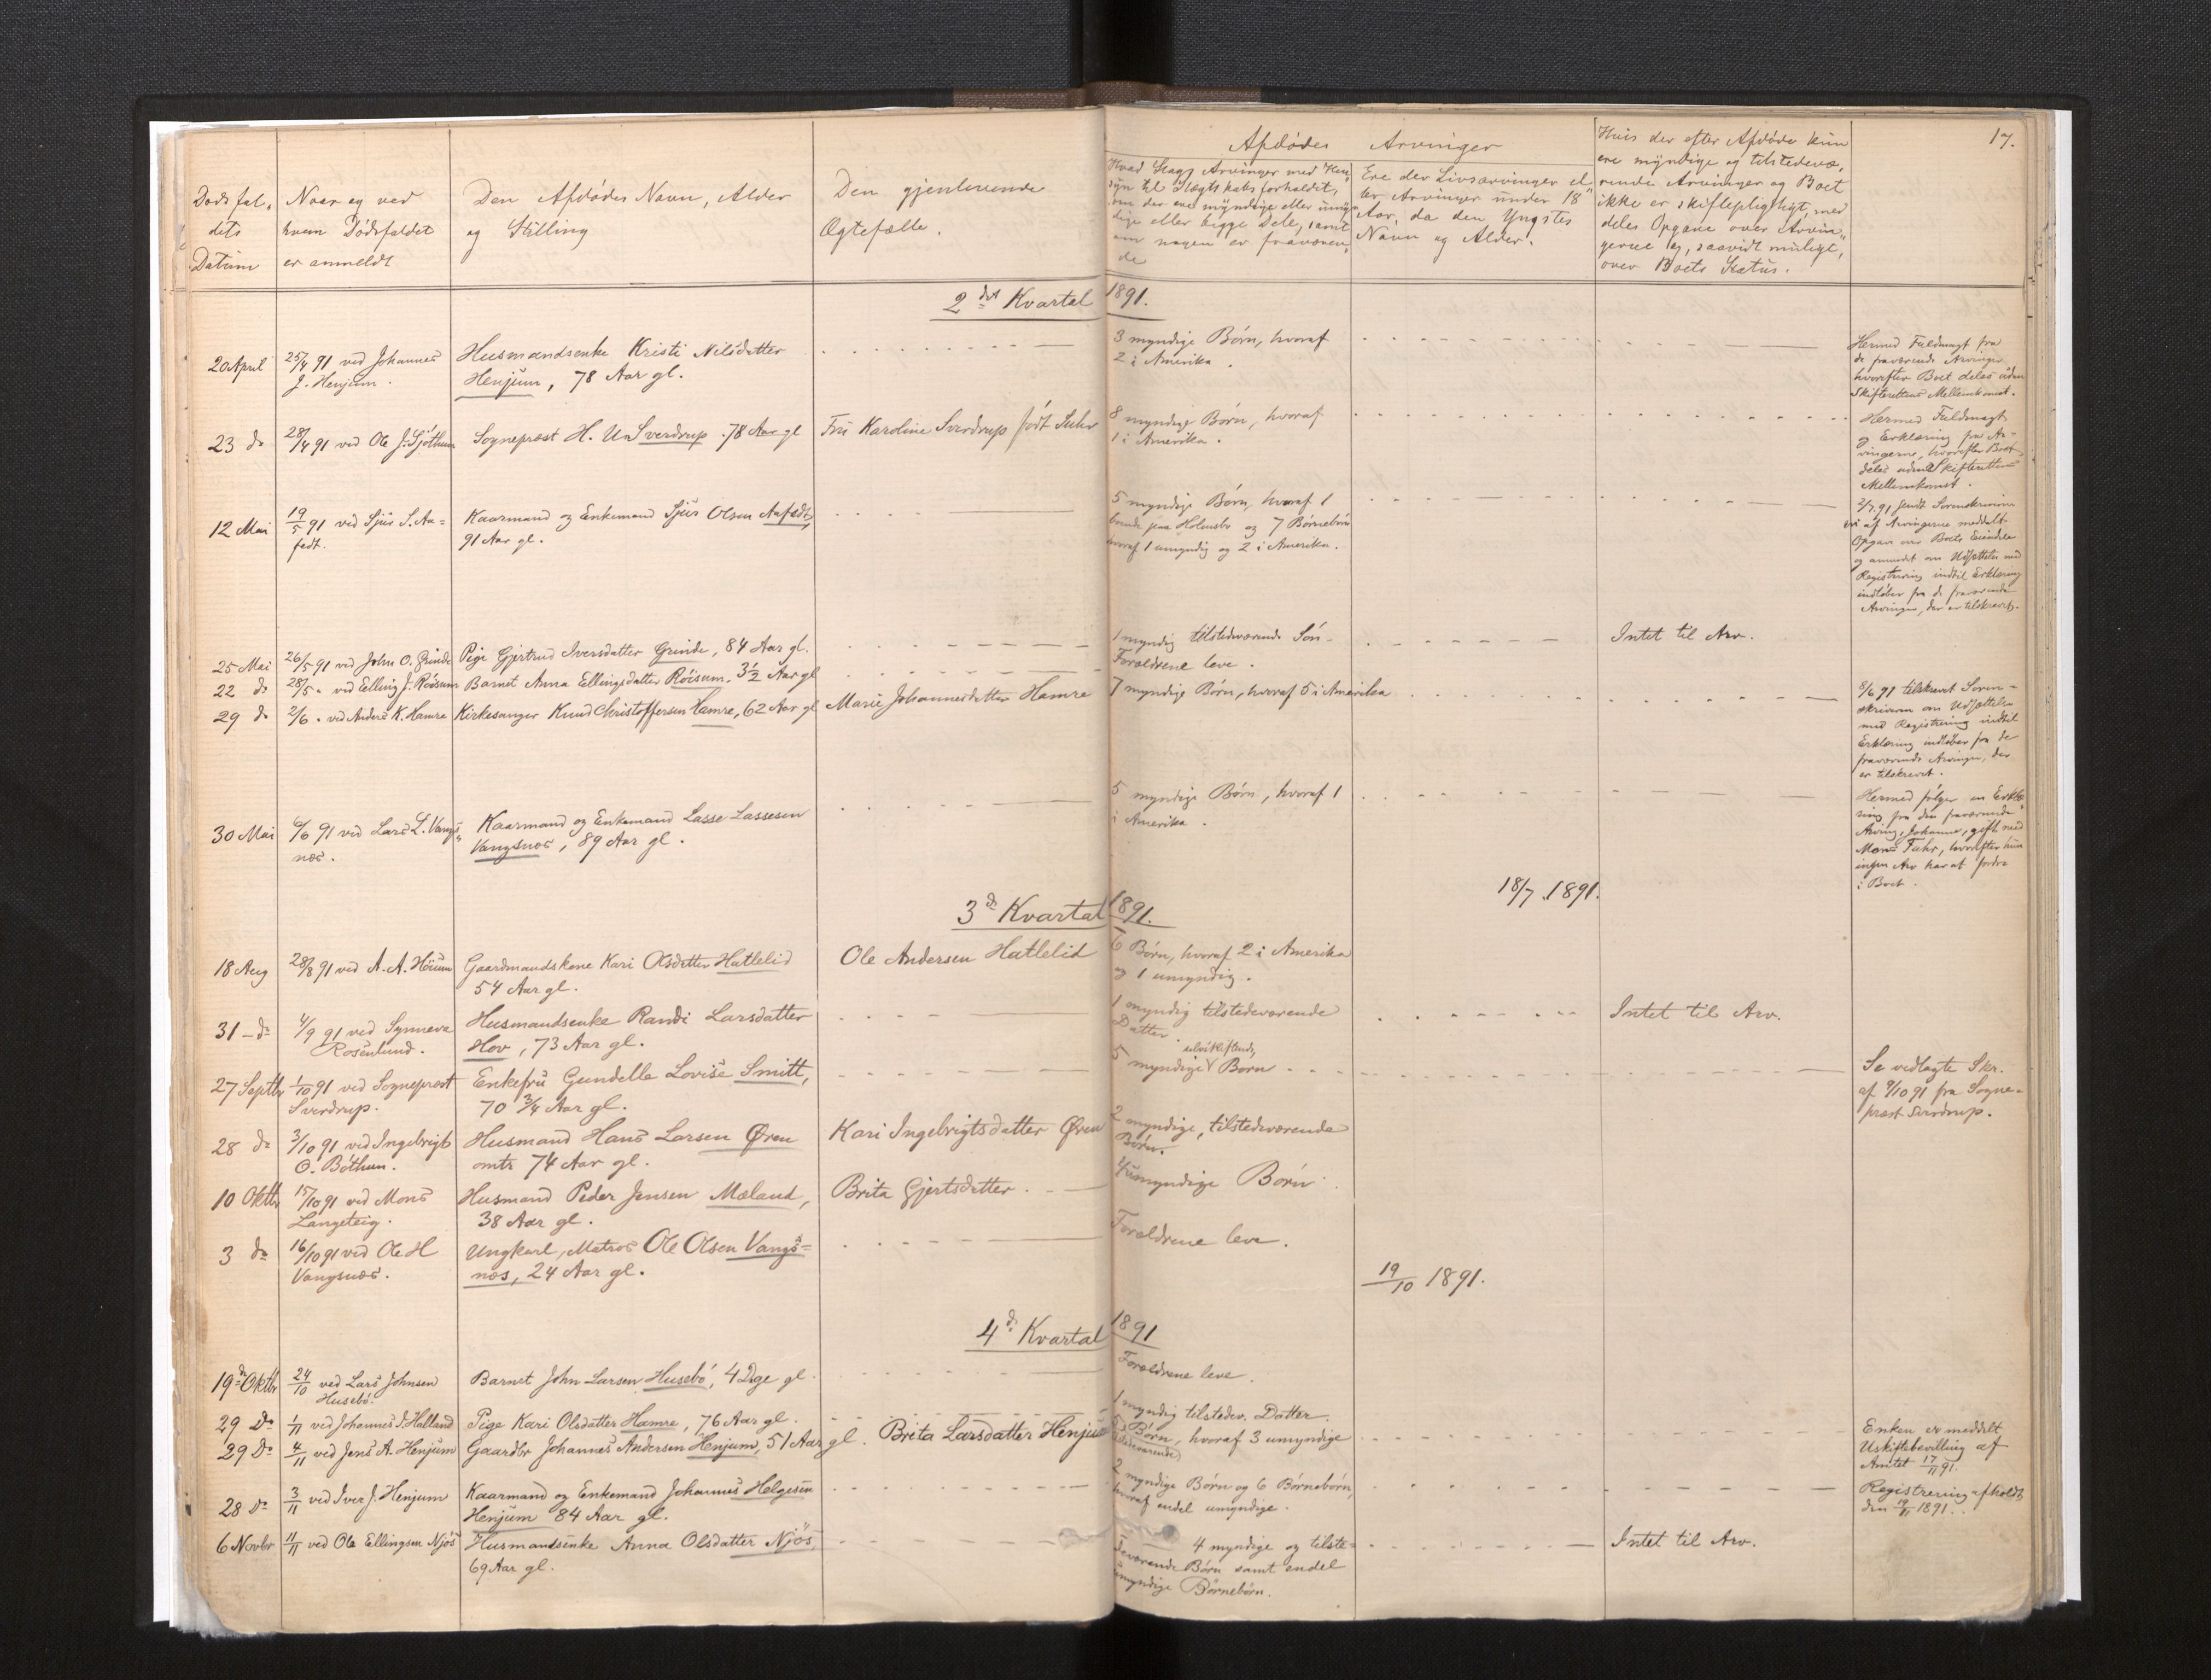 17.
Afdødes Arvinger
Dødsfal-
dets
Datum
Naar og ved
hvem Dødsfaldet
er anmeldt
Den Afdødes Navn, Alder
og Stilling
Den gjenlevende
Ægtefælle.
Hvad Slags Arvinger med Hen-
syn til Slægtskabsforholdet,
om der ere myndige eller umyn-
dige eller begge Dele, samt
om nogen er fraværen-
de
Ere der Livsarvinger el-
ler Arvinger under 18
Aar, da den Yngstes
Navn og Alder.
Hvis der efter Afdøde kun
ere myndige og tilstedevæ-
rende Arvinger og Boet
ikke er skiftepligtigt, med
deles Opgave over Arvin-
gerne og, saavidt muligt,
over Boets Status.
2det Kvartal 1891.
20 April
25/4 91 ved Johannes
J. Henjum.
Husmandsenke Kristi Nilsdatter
Henjum, 78 Aar gl.
3 myndige Børn, hvoraf
2 i Amerika.
Hermed Fuldmagt fra
de fraværende Arvinger
hvorefter Boet deles uden
Skifterettens Mellemkomst.
23 do
28/4 91 ved Ole J. Sjøthun
Sogneprest H. U. Sverdrup. 78 Aar gl
Fru Karoline Sverdrup født Suhr
8 myndige Børn, hvoraf
1 i Amerika.
Hermed Fuldmagt
og Erklæring fra Ar-
vingerne, hvorefter Boet
deles uden Skifterettens
Mellemkomst.
12 Mai
19/5 91 ved Sjur S. Aa-
fedt.
Kaarmand og Enkemand Sjur Olsen Aafedt,
91 Aar gl.
5 myndige Børn, hvoraf 1
boende paa Holmsbo og 7 Børnebørn
hvoraf 1 umyndig og 2 i Amerika.
2/7 91 sendt Sorenskriveren
en af Arvingerne meddelt
Opgave over Boets Eiendele
og anmodet om Udsættelse med
Registrering indtil Erklæring
indløber fra de fraværende
Arvinger, der er tilskrevet.
25 Mai
26/5 91 ved John O. Grinde
Pige Gjertrud Iversdatter Grinde, 84 Aar gl.
1 myndig tilstedeværende Søn
Intet til Arv.
22 do
28/5 " ved Elling J. Røisum
Barnet Anna Ellingsdatter Røisum. 3½ Aar gl
Forældrene leve.
29 do
2/6 " ved Anders K. Hamre
Kirkesanger Knud Christoffersen Hamre, 62 Aar gl
Marie Johannesdatter Hamre
7 myndige Børn, hvoraf 5 i Amerika
8/6 91 tilskrevet Soren-
skriveren om Udsættelse
med Registrering indtil
Erklæring indløber fra de
fraværende Arvinger, der
er tilskrevet.
30 Mai
6/6 91 ved Lars L. Vangs-
næs.
Kaarmand og Enkemand Lasse Lassesen
Vangsnæs, 89 Aar gl.
5 myndige Børn, hvoraf 1
i Amerika.
Hermed følger en Erklæ-
ring fra den fraværende
Arving, Johanna, gift med
Mons Fuhr, hvorefter hun
ingen Arv har at fordre
i Boet.
18/7 1891.
3die Kvartal 1891.
18 Aug
28/8 91 ved A. A. Hørum
Gaardmandskone Kari Olsdatter Hatlelid
54 Aar gl.
Ole Andersen Hatlelid
6 Børn, hvoraf 2 i Amerika
og 1 umyndig.
31 – do
4/9 91 ved Synneva
Rosenlund.
Husmandsenke Randi Larsdatter
Hov, 73 Aar gl.
1 myndig tilstedeværende
Datter.
Intet til Arv.
27 Septbr
1/10 91 ved Sogneprest
Sverdrup.
Enkefru Gundelle Lovise Smitt,
70 3/4 Aar gl.
selvskiftende,
5 myndige Børn
Se vedlagte Skr.
af 9/10 91 fra Sogne-
prest Sverdrup.
28 do
3/10 91 ved Ingebrigt
O. Bøthun.
Husmand Hans Larsen Øren
omtr 74 Aar gl.
Kari Ingebrigtsdatter Øren
2 myndige, tilstedeværende
Børn.
10 Oktbr
15/10 91 ved Mons
Langeteig.
Husmand Peder Jensen Mæland,
38 Aar gl.
Brita Gjertsdatter.
4 umyndige Børn.
3 do
16/10 91 ved Ole H
Vangsnæs.
Ungkarl, Matros Ole Olsen Vangs-
næs, 24 Aar gl.
Forældrene leve.
19/10 1891.
4de Kvartal 1891
19de Oktbr
24/10 ved Lars Johnsen
Husebø.
Barnet John Larsen Husebø, 4 Dage gl.
Forældrene leve.
29 Do
1/11 ved Johannes J. Halland
Pige Kari Olsdatter Hamre, 76 Aar gl.
1 myndig tilstedev. Datter.
29 Do
4/11 ved Jens A. Henjum
Gaardbr Johannes Andersen Henjum, 51 Aar gl.
Brita Larsdatter Henjum
5 Børn, hvoraf 3 umyndige
(tilstedeværende)
Enken er meddelt
Uskiftebevilling af
Amtet 17/11 91.
28 Do
3/11 ved Iver J. Henjum
Kaarmand og Enkemand Johannes Helgesen
Henjum 84 Aar gl.
2 myndige Børn og 6 Børnebørn,
hvoraf endel umyndige.
Registrering afholdt
den 19/11 1891.
6 Novbr
11/11 ved Ole Ellingsen Njøs
Husmandsenke Anna Olsdatter Njøs,
69 Aar gl.
4 myndige og tilste-
deværende Børn samt endel
umyndige Børnebørn.
Intet til Arv.